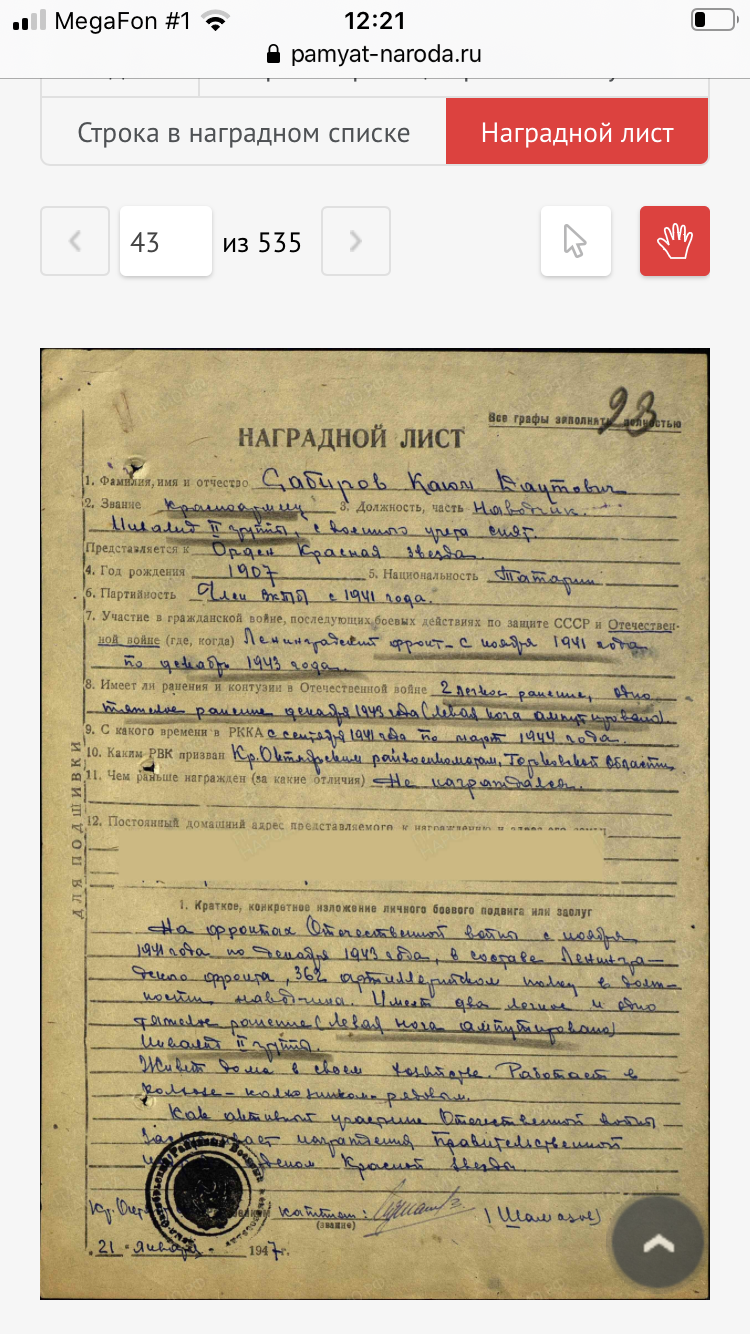 MegaFon #1
12:21
pamyat-naroda.ru
Строка в наградном списке
Наградной лист
43
из 535
93
Все графы заполнять полностью
НАГРАДНОЙ ЛИСТ
1. Фамилия, имя и отчество Сабиров Каюм Даутович
2. Звание красноармеец 3. Должность, часть Наводчик.
Инвалид II группы, с военного учета снят.
Представляется к Орден Красная звезда.
4. Год рождения 1907 5. Национальность Татарин
6. Партийность Член ВКП(б) с 1941 года.
7. Участие в гражданской войне, последующих боевых действиях по защите СССР и Отечествен-
ной войне (где, когда) Ленинградский фронт - с ноября 1941 года
по декабрь 1943 года.
8. Имеет ли ранения и контузии в Отечественной войне 2 легкое ранение, одно
тяжелое ранение декабря 1943 года (левая нога ампутировано)
9. С какого времени в РККА с сентября 1941 года по март 1944 года.
10. Каким РВК призван Кр. Октябрским райвоенкоматом, Горьковской области
11. Чем раньше награжден (за какие отличия) Не награждался.
12. Постоянный домашний адрес представляемого к награждению и адрес его семьи
ДЛЯ ПОДШИВКИ
1. Краткое, конкретное изложение личного боевого подвига или заслуг
На фронтах Отечественной войны с ноября
1941 года по декабря 1943 года, в составе Ленингра-
дского фронта, 362 артиллерийском полку в долж-
ности наводчика. Имеет два легкое и одно
тяжелое ранение (левая нога ампутировано)
Инвалид II группы.
Живет дома в своем хозяйстве. Работает в
колхозе - колхозником рядовым.
Как активный участник Отечественной войны
награждения Правительственной
Красной звезды
Кр. капитан: (Шамазов)
(звание)
"21" Января 1947г.